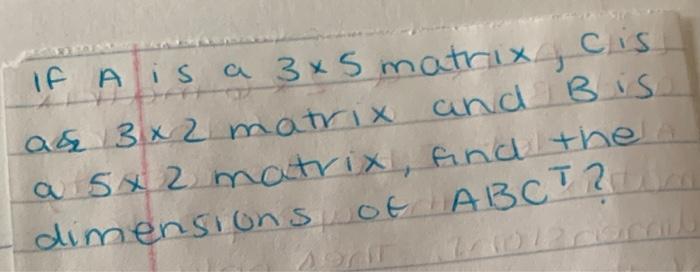 If A is a 3x5 matrix, C is
a 3x2 matrix and B is
a 5x2 matrix, find the
dimensions of ABCᵀ?